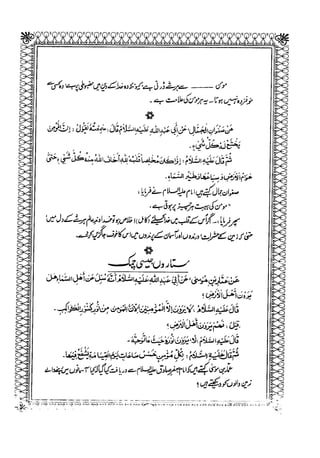 مومن ــــــ سے ہر شے ڈرتی ہے کیونکہ وہ خدا کے دین میں مضبوطی سے ہے وہ کسی سے
خوفزدہ نہیں ہوتا۔ یہ ہر مومن کی علامت ہے۔
عَنْ صَفْوَانَ الْجَمَّالِ عَنْ أَبِي عَبْدِ اللهِ عَلَيْهِ السَّلَامُ قَالَ سَمِعْتُهُ يَقُولُ: إِنَّ الْمُؤْمِنَ
يَخْشَعُ لَهُ كُلُّ شَيْءٍ۔
ثُمَّ قَالَ عَلَيْهِ السَّلَامُ: إِذَا كَانَ مُخْلِصًا قَلْبُهُ لِلّٰهِ أَخَافَ اللهُ مِنْهُ كُلَّ شَيْءٍ حَتَّى
هَوَامَّ الْأَرْضِ وَسِبَاعَهَا وَطَيْرَ السَّمَاءِ۔
صفوان جمال کہتے ہیں امام علیہ السلام نے فرمایا:
"مومن کی ہیبت ہر چیز پر ہوتی ہے۔
پھر فرمایا: اگر اس کے قلب میں خدا کیلئے (کامل) اخلاص ہو تو خداوند عالم ہر شے کے دل میں
حتیٰ کہ زمین کے حشرات درندوں اور آسمان کے پرندوں میں اس کا خوف جاگزیں کر دے گا۔
ستاروں جیسی چمک
عَنْ عَمَّارِ بْنِ مُوسَى عَنْ أَبِي عَبْدِ اللهِ عَلَيْهِ السَّلَامُ أَنَّهُ سُئِلَ عَنْ أَهْلِ السَّمَاءِ هَلْ
يَرَوْنَ أَهْلَ الْأَرْضِ؟
قَالَ عَلَيْهِ السَّلَامُ: لَا يَرَوْنَ إِلَّا الْمُؤْمِنِينَ لِأَنَّ الْمُؤْمِنَ مِنْ نُورٍ كَنُورِ الْكَوَاكِبِ۔
قِيلَ: فَهُمْ يَرَوْنَ أَهْلَ الْأَرْضِ؟
قَالَ عَلَيْهِ السَّلَامُ: لَا يَرَوْنَ نُورَهُ حَيْثُ مَا تَوَجَّهَ۔
ثُمَّ قَالَ عَلَيْهِ السَّلَامُ: لِكُلِّ مُؤْمِنٍ خَمْسُ سَاعَاتٍ يَوْمَ الْقِيَامَةِ يَشْفَعُ فِيهَا۔
عمار بن موسیٰ کہتے ہیں کہ امام جعفر صادق علیہ السلام سے دریافت کیا گیا کہ کیا آسمانوں میں بسنے والے
زمین والوں کو دیکھتے ہیں؟